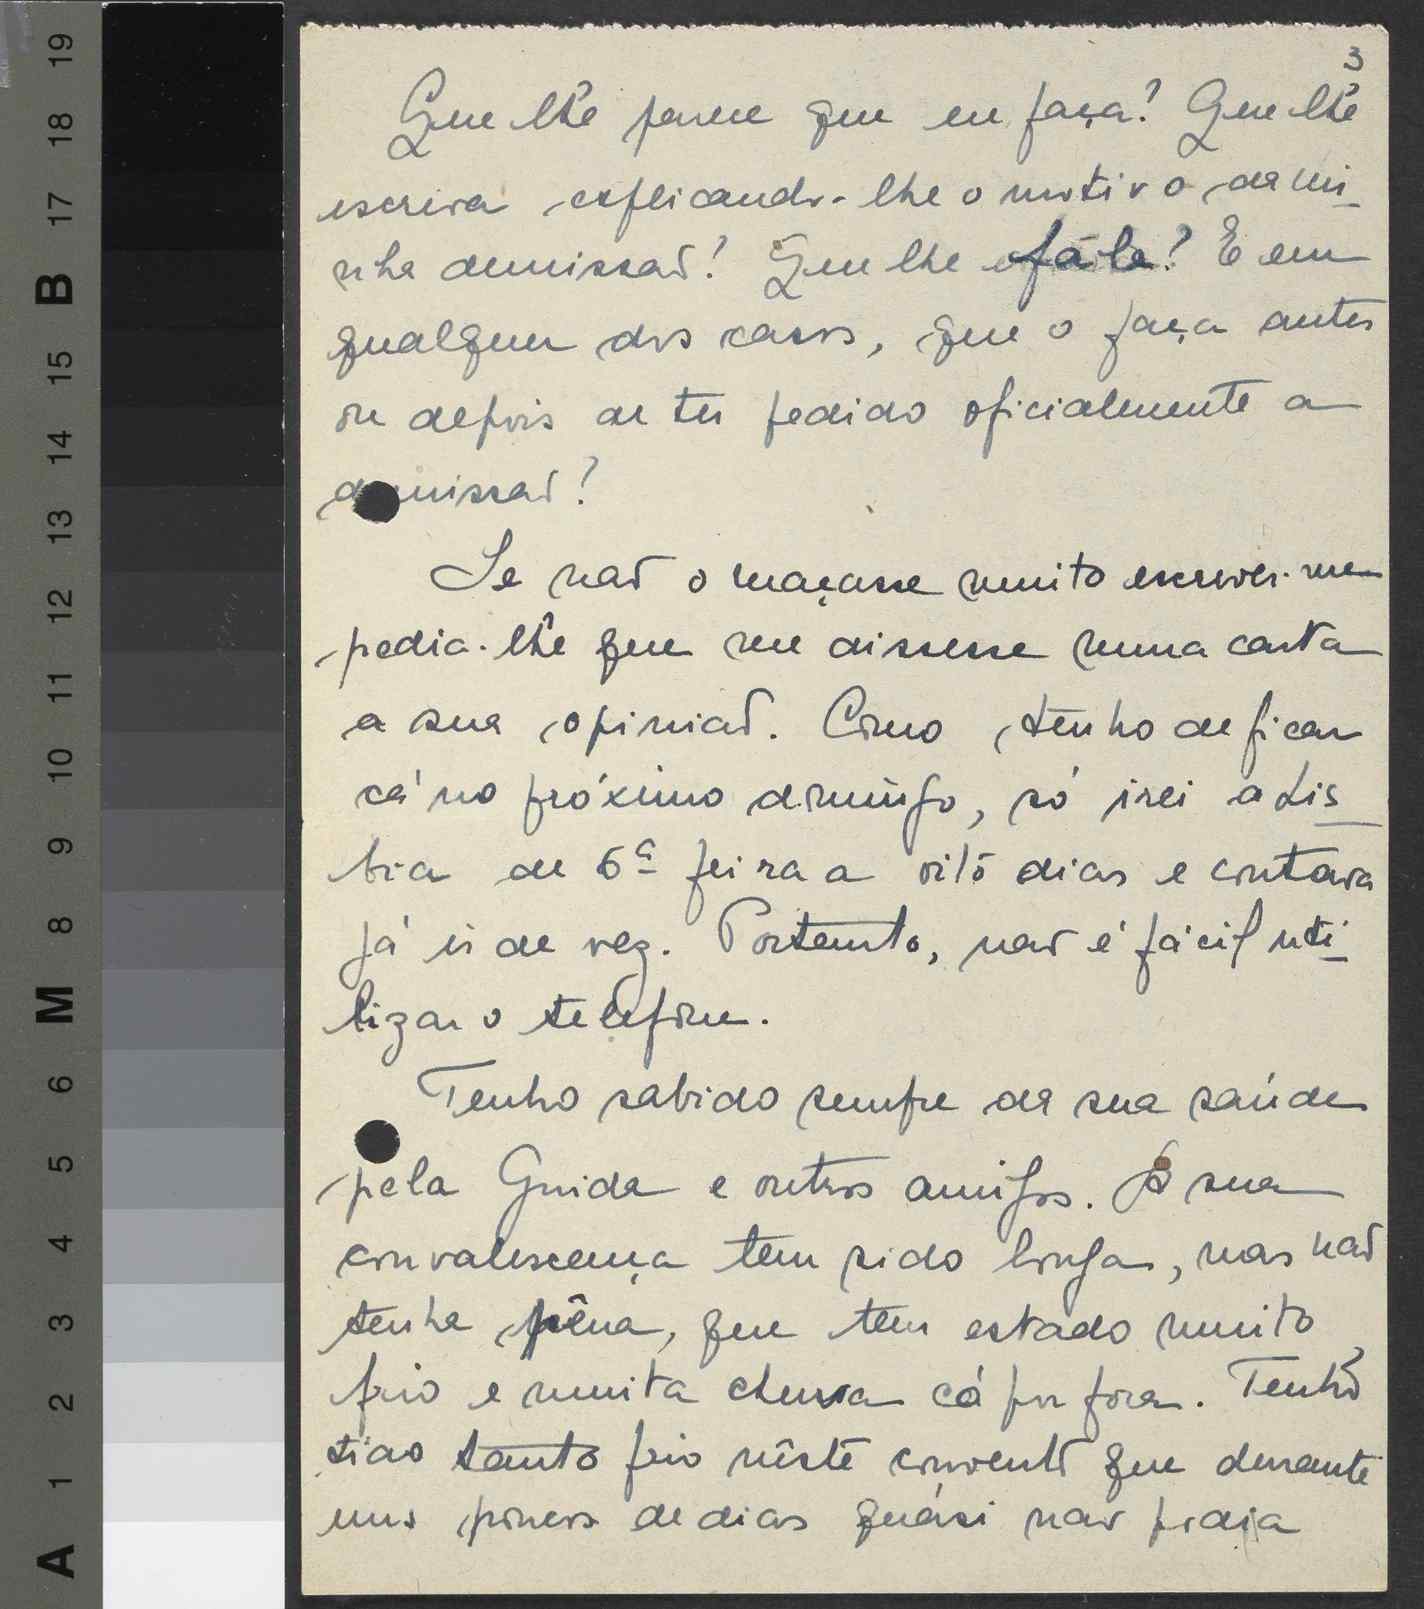 3
Que lhe parece que eu faça? Que lhe
escreva explicando-lhe o motivo da mi-
nha demissão? Que lhe fále? E em
qualquer dos casos, que o faça antes
ou depois de ter pedido oficialmente a
demissão?
Se não o maçasse muito escrever-me
pedia-lhe que me dissesse numa carta
a sua opinião. Como tenho de ficar
cá no próximo domingo, só irei a Lis-
boa de 6ª feira a oito dias e contava
já ir de vez. Portanto, não é fácil uti-
lizar o telefone.
Tenho sabido sempre da sua saúde
pela Guida e outros amigos. A sua
convalescença tem sido longa, mas não
tenha pêna, que tem estado muito
frio e muita chuva cá por fora. Tenho
tido tanto frio nêste convento que durante
uns poucos de dias quási não podia
19
18
17
B
15
14
13
12
11
10
9
8
M
6
5
4
3
2
1
A